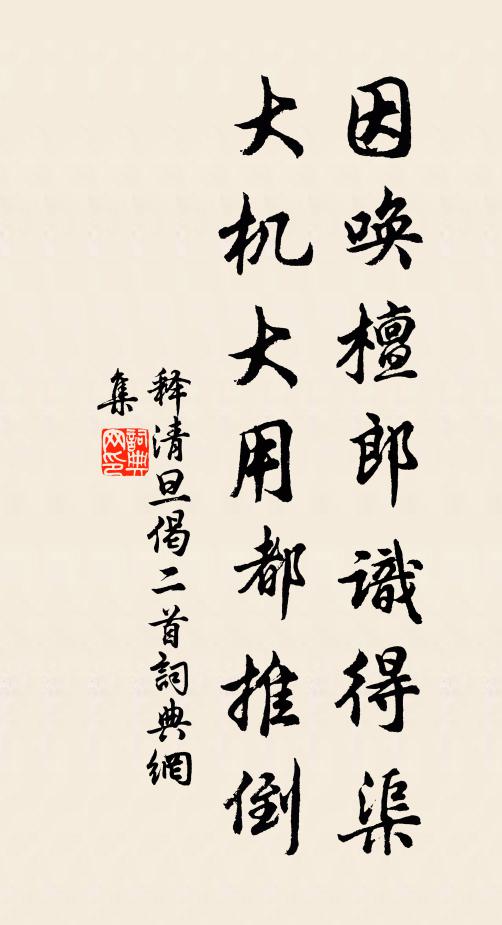 因唤檀郎識得渠
大机大用都推倒
释清旦偈二首詞典網
集
詞典网印